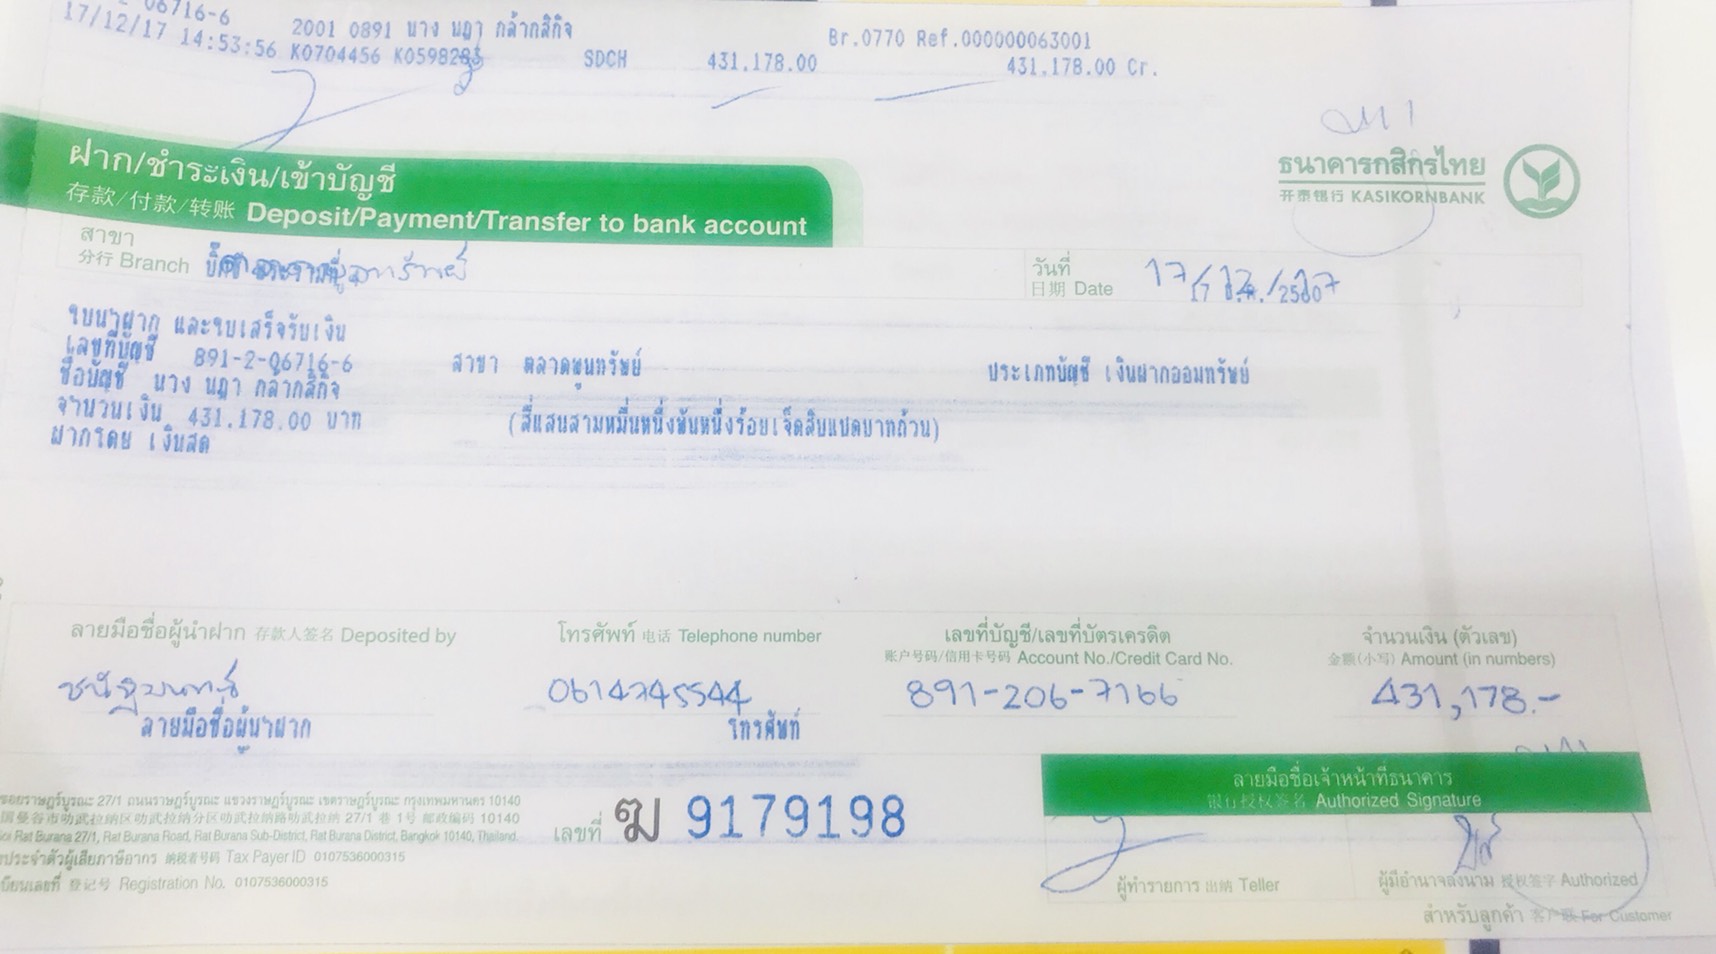 06716-6 2001 0891 นาง นฎา กล้ากสิกิจ Br.0770 Ref.000000063001
17/12/17 14:53:56 K0704456 SDCH 431,178.00 431,178.00 Cr.
ฝาก/ชำระเงิน/เข้าบัญชี
存款/付款/转账 Deposit/Payment/Transfer to bank account
ธนาคารกสิกรไทย
开泰银行 KASIKORNBANK
สาขา
分行 Branch
วันที่
日期 Date 17
ใบนำฝาก และใบเสร็จรับเงิน
เลขที่บัญชี 891-2-06716-6 สาขา ตลาดพูนทรัพย์ ประเภทบัญชี เงินฝากออมทรัพย์
ชื่อบัญชี นาง นฎา กล้ากสิกิจ
จำนวนเงิน 431,178.00 บาท (สี่แสนสามหมื่นหนึ่งพันหนึ่งร้อยเจ็ดสิบแปดบาทถ้วน)
ฝากโดย เงินสด
ลายมือชื่อผู้นำฝาก 存款人签名 Deposited by
โทรศัพท์ 电话 Telephone number
0614745544
เลขที่บัญชี/เลขที่บัตรเครดิต
账户号码/信用卡号码 Account No./Credit Card No.
891-206-7166
จำนวนเงิน (ตัวเลข)
金额(小写) Amount (in numbers)
431,178.-
ลายมือชื่อผู้นำฝาก โทรศัพท์
ซอยราษฎร์บูรณะ 27/1 ถนนราษฎร์บูรณะ แขวงราษฎร์บูรณะ เขตราษฎร์บูรณะ กรุงเทพมหานคร 10140
国曼谷市叻武拉纳区叻武拉纳分区叻武拉纳路叻武拉纳 27/1 巷 1号 邮政编码 10140
Soi Rat Burana 27/1, Rat Burana Road, Rat Burana Sub-District, Rat Burana District, Bangkok 10140, Thailand.
ประจำตัวผู้เสียภาษีอากร 纳税者号码 Tax Payer ID 0107536000315
เบียนเลขที่ 登记号 Registration No. 0107536000315
เลขที่ ฆ 9179198
ลายมือชื่อเจ้าหน้าที่ธนาคาร
银行授权签名 Authorized Signature
ผู้ทำรายการ 出纳 Teller
ผู้มีอำนาจลงนาม 授权签字 Authorized
สำหรับลูกค้า 客户联 For Customer